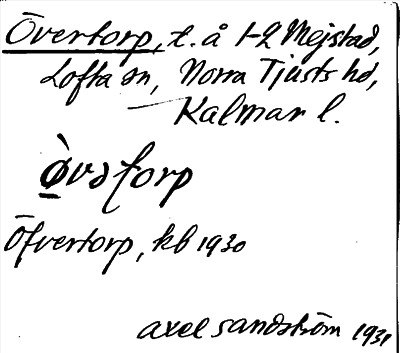 Övertorp, t. å 1-2 Mejstad,
Lofta sn, Norra Tjusts hd,
Kalmar l.
ø̀vətorp
Öfvertorp, kb 1930
Axel Sandström 1931